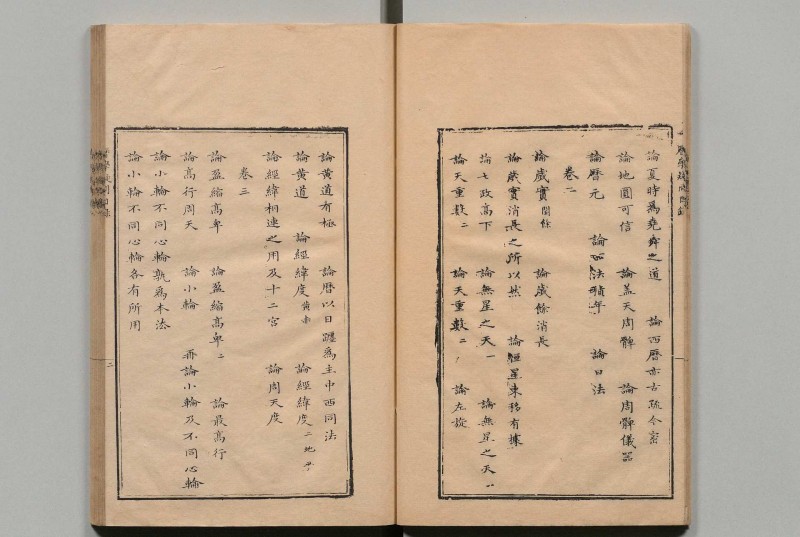 論夏時爲堯舜之道　論西曆亦古疏今密
論地圓可信　論蓋天周髀　論周髀儀器
論曆元　論西法積年　論日法
卷二
論歲實閏餘　論歲餘消長
論歲實消長之所以然　論恒星東移有據
論七政高下　論無星之天一　論無星之天
論天重數二　論天重數二　論左旋
論黄道有極　論曆以日躔爲主中西同法
論黄道　論經緯度黄赤　論經緯度二地平
論經緯相連之用及十二宮　論周天度
卷三
論盈縮高卑　論盈縮高卑二　論最高行
論高行周天　論小輪　再論小輪及不同心輪
論小輪不同心輪孰爲本法
論小輪不同心輪各有所用
二